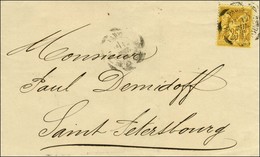 Monsieur
Paul Demidoff
Saint Petersbourg